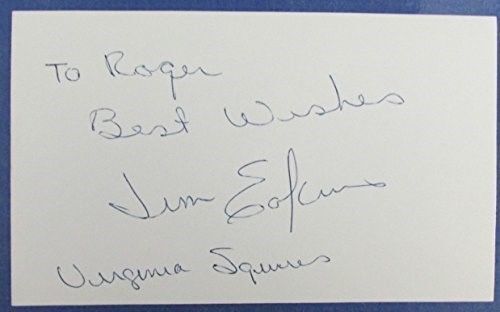 To Roger
Best Wishes
Jim Eakins
Virginia Squires